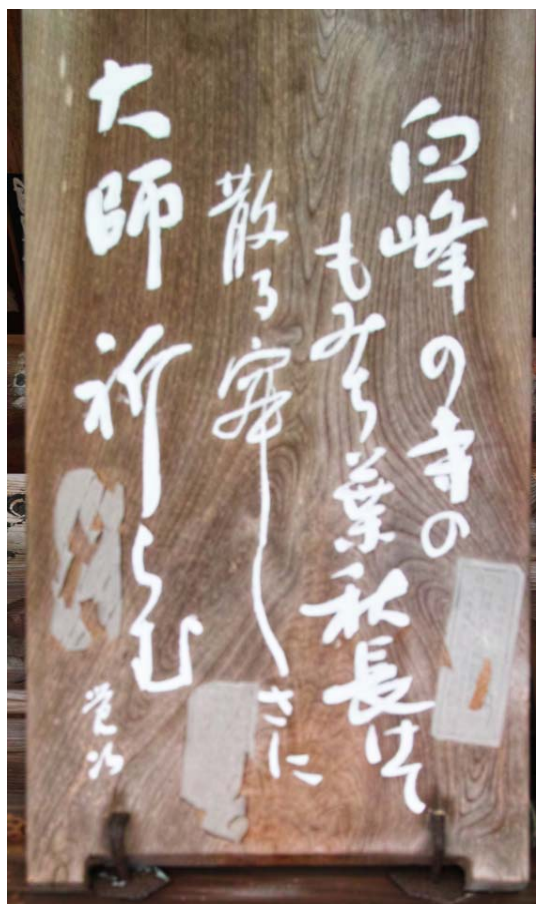 白峰の寺の
もみち葉秋長けて
散る寂しさに
大師祈らむ